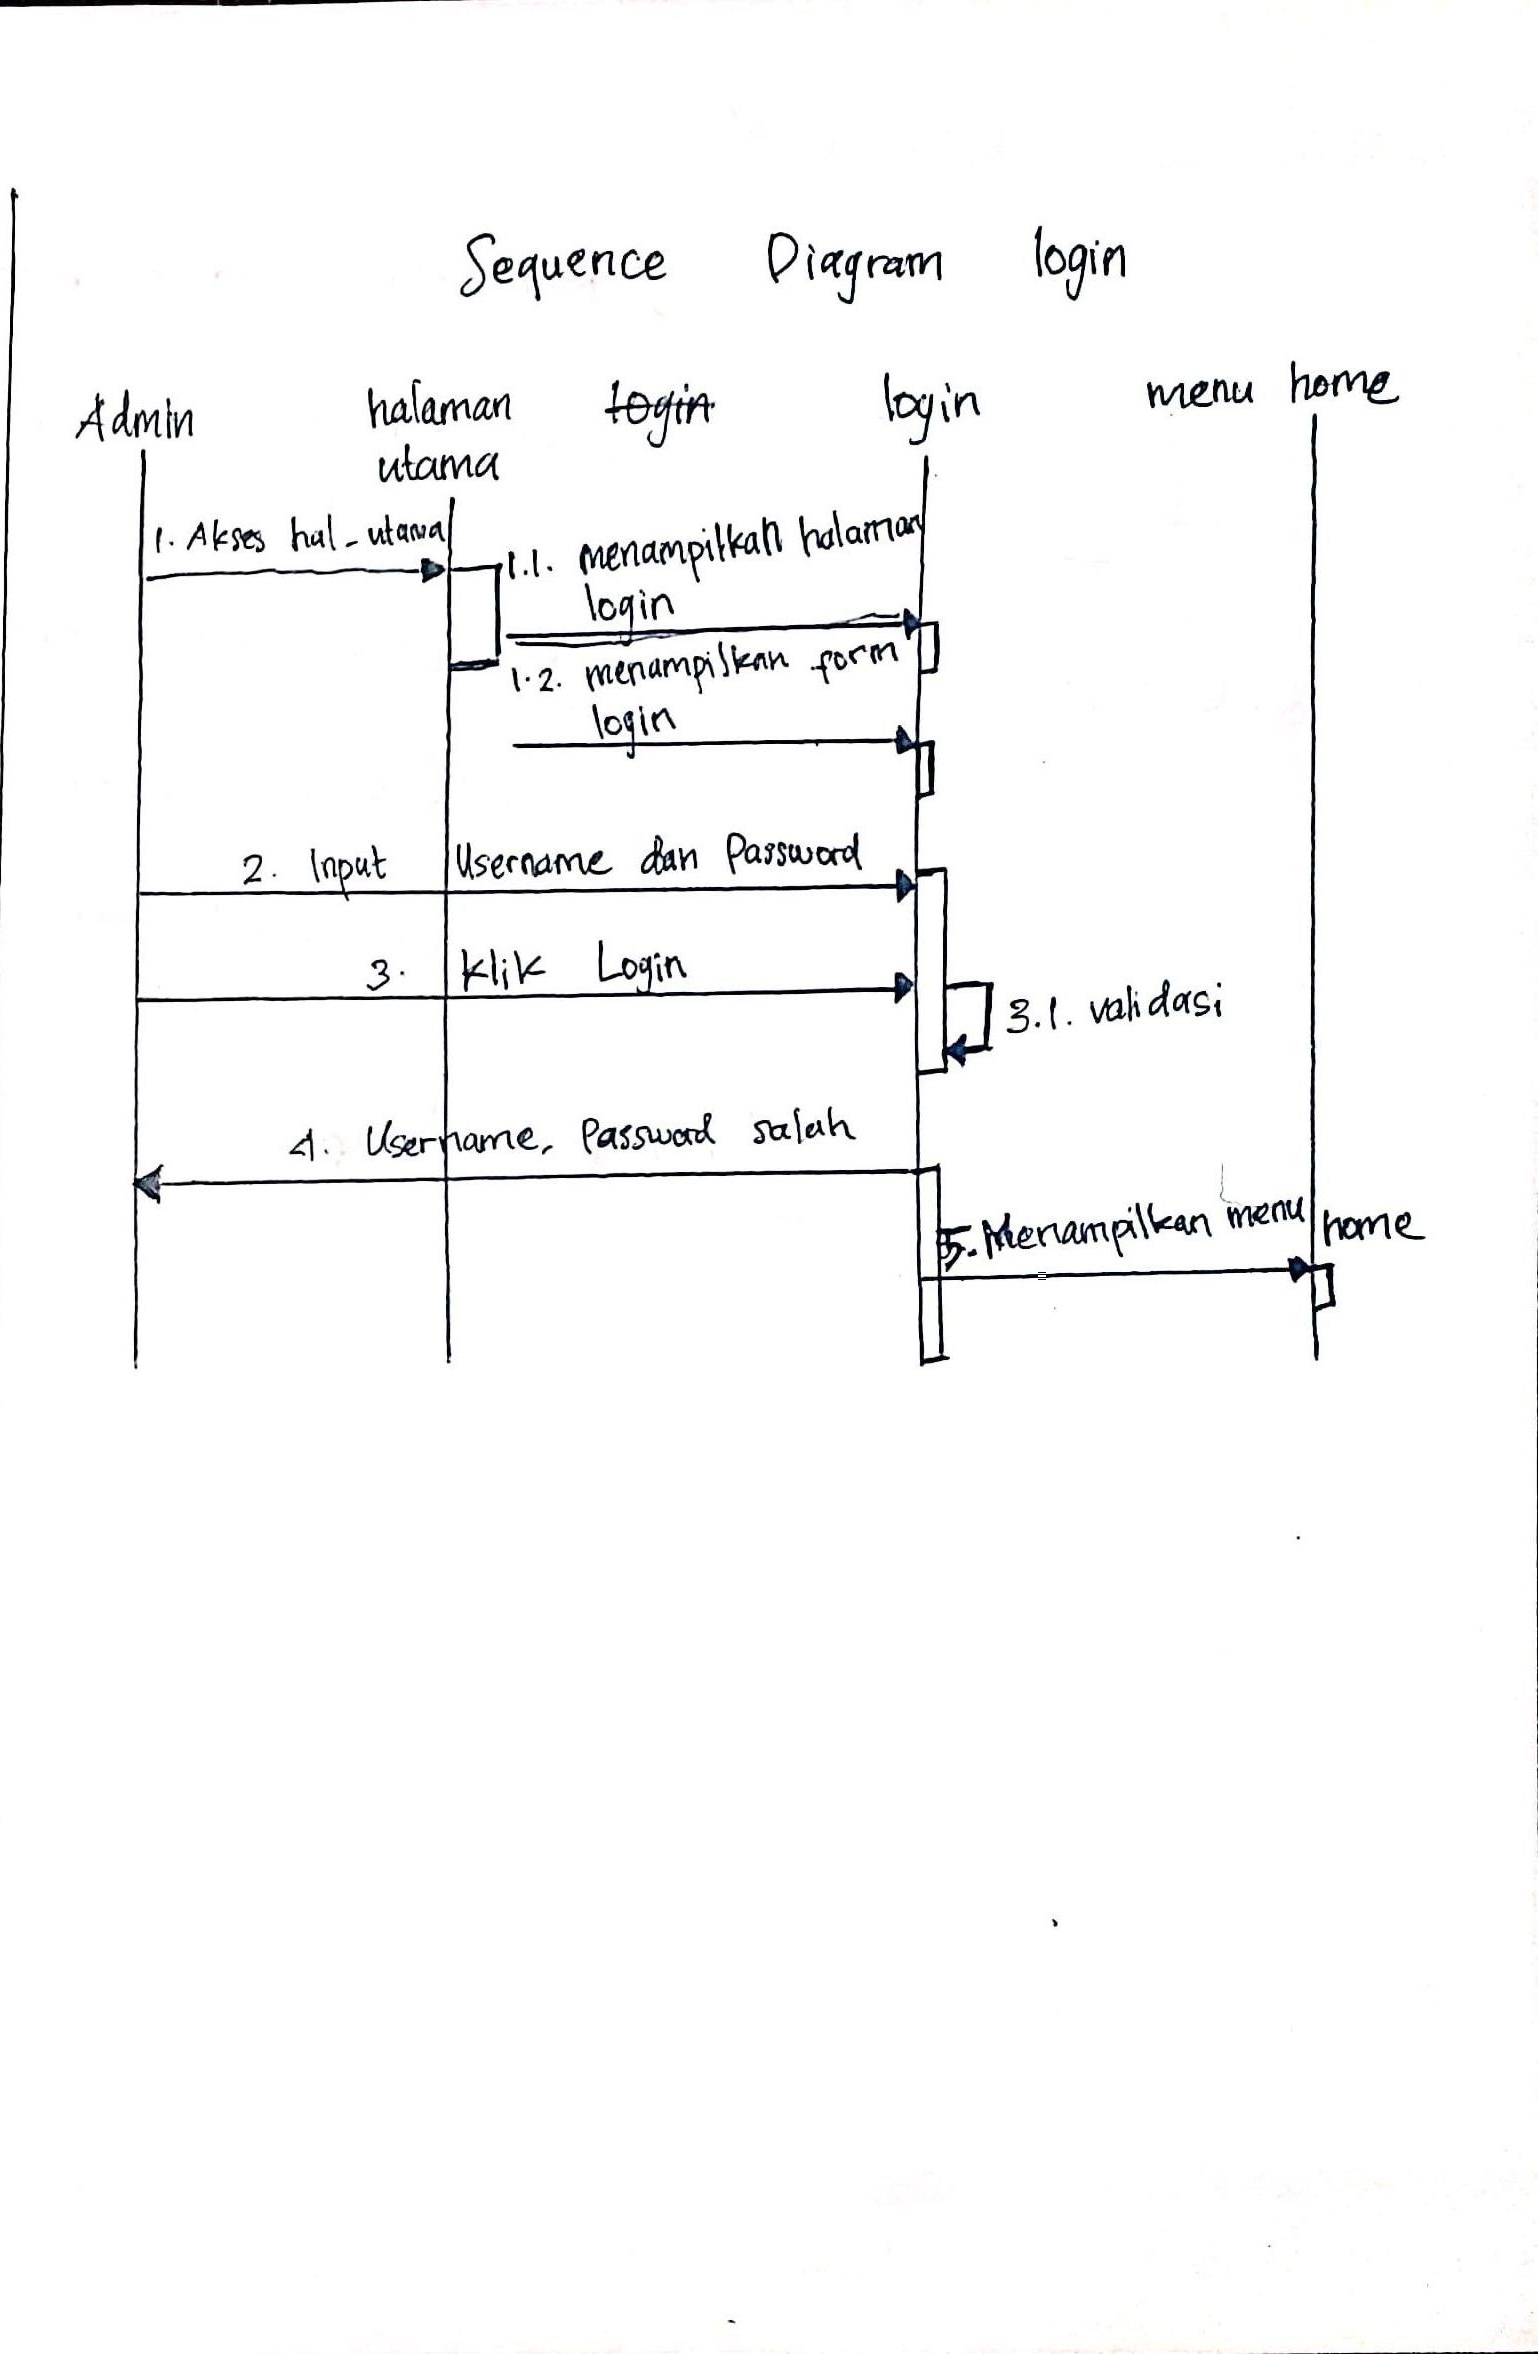 Sequence Diagram login
Admin halaman login login menu home
utama
1. Akses hal-utama
1.1. menampilkan halaman
login
1.2. menampilkan form
login
2. Input Username dan Password
3. Klik Login
3.1. validasi
4. Username, Password salah
5. Menampilkan menu home